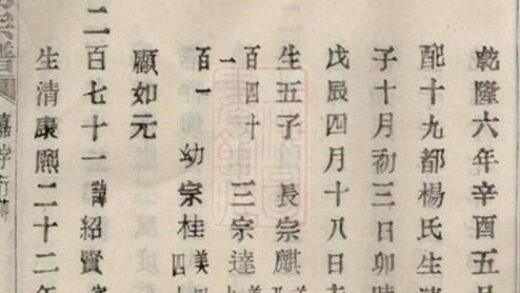 乾隆六年辛酉五
配十九都楊氏生
子十月初三日卯時
戊辰四月十八日
生五子 長宗麒
百四十一 三宗達美
百一 幼宗桂美四
顧如元
二百七十一諱紹賢
生清康熙二十二年
宗譜